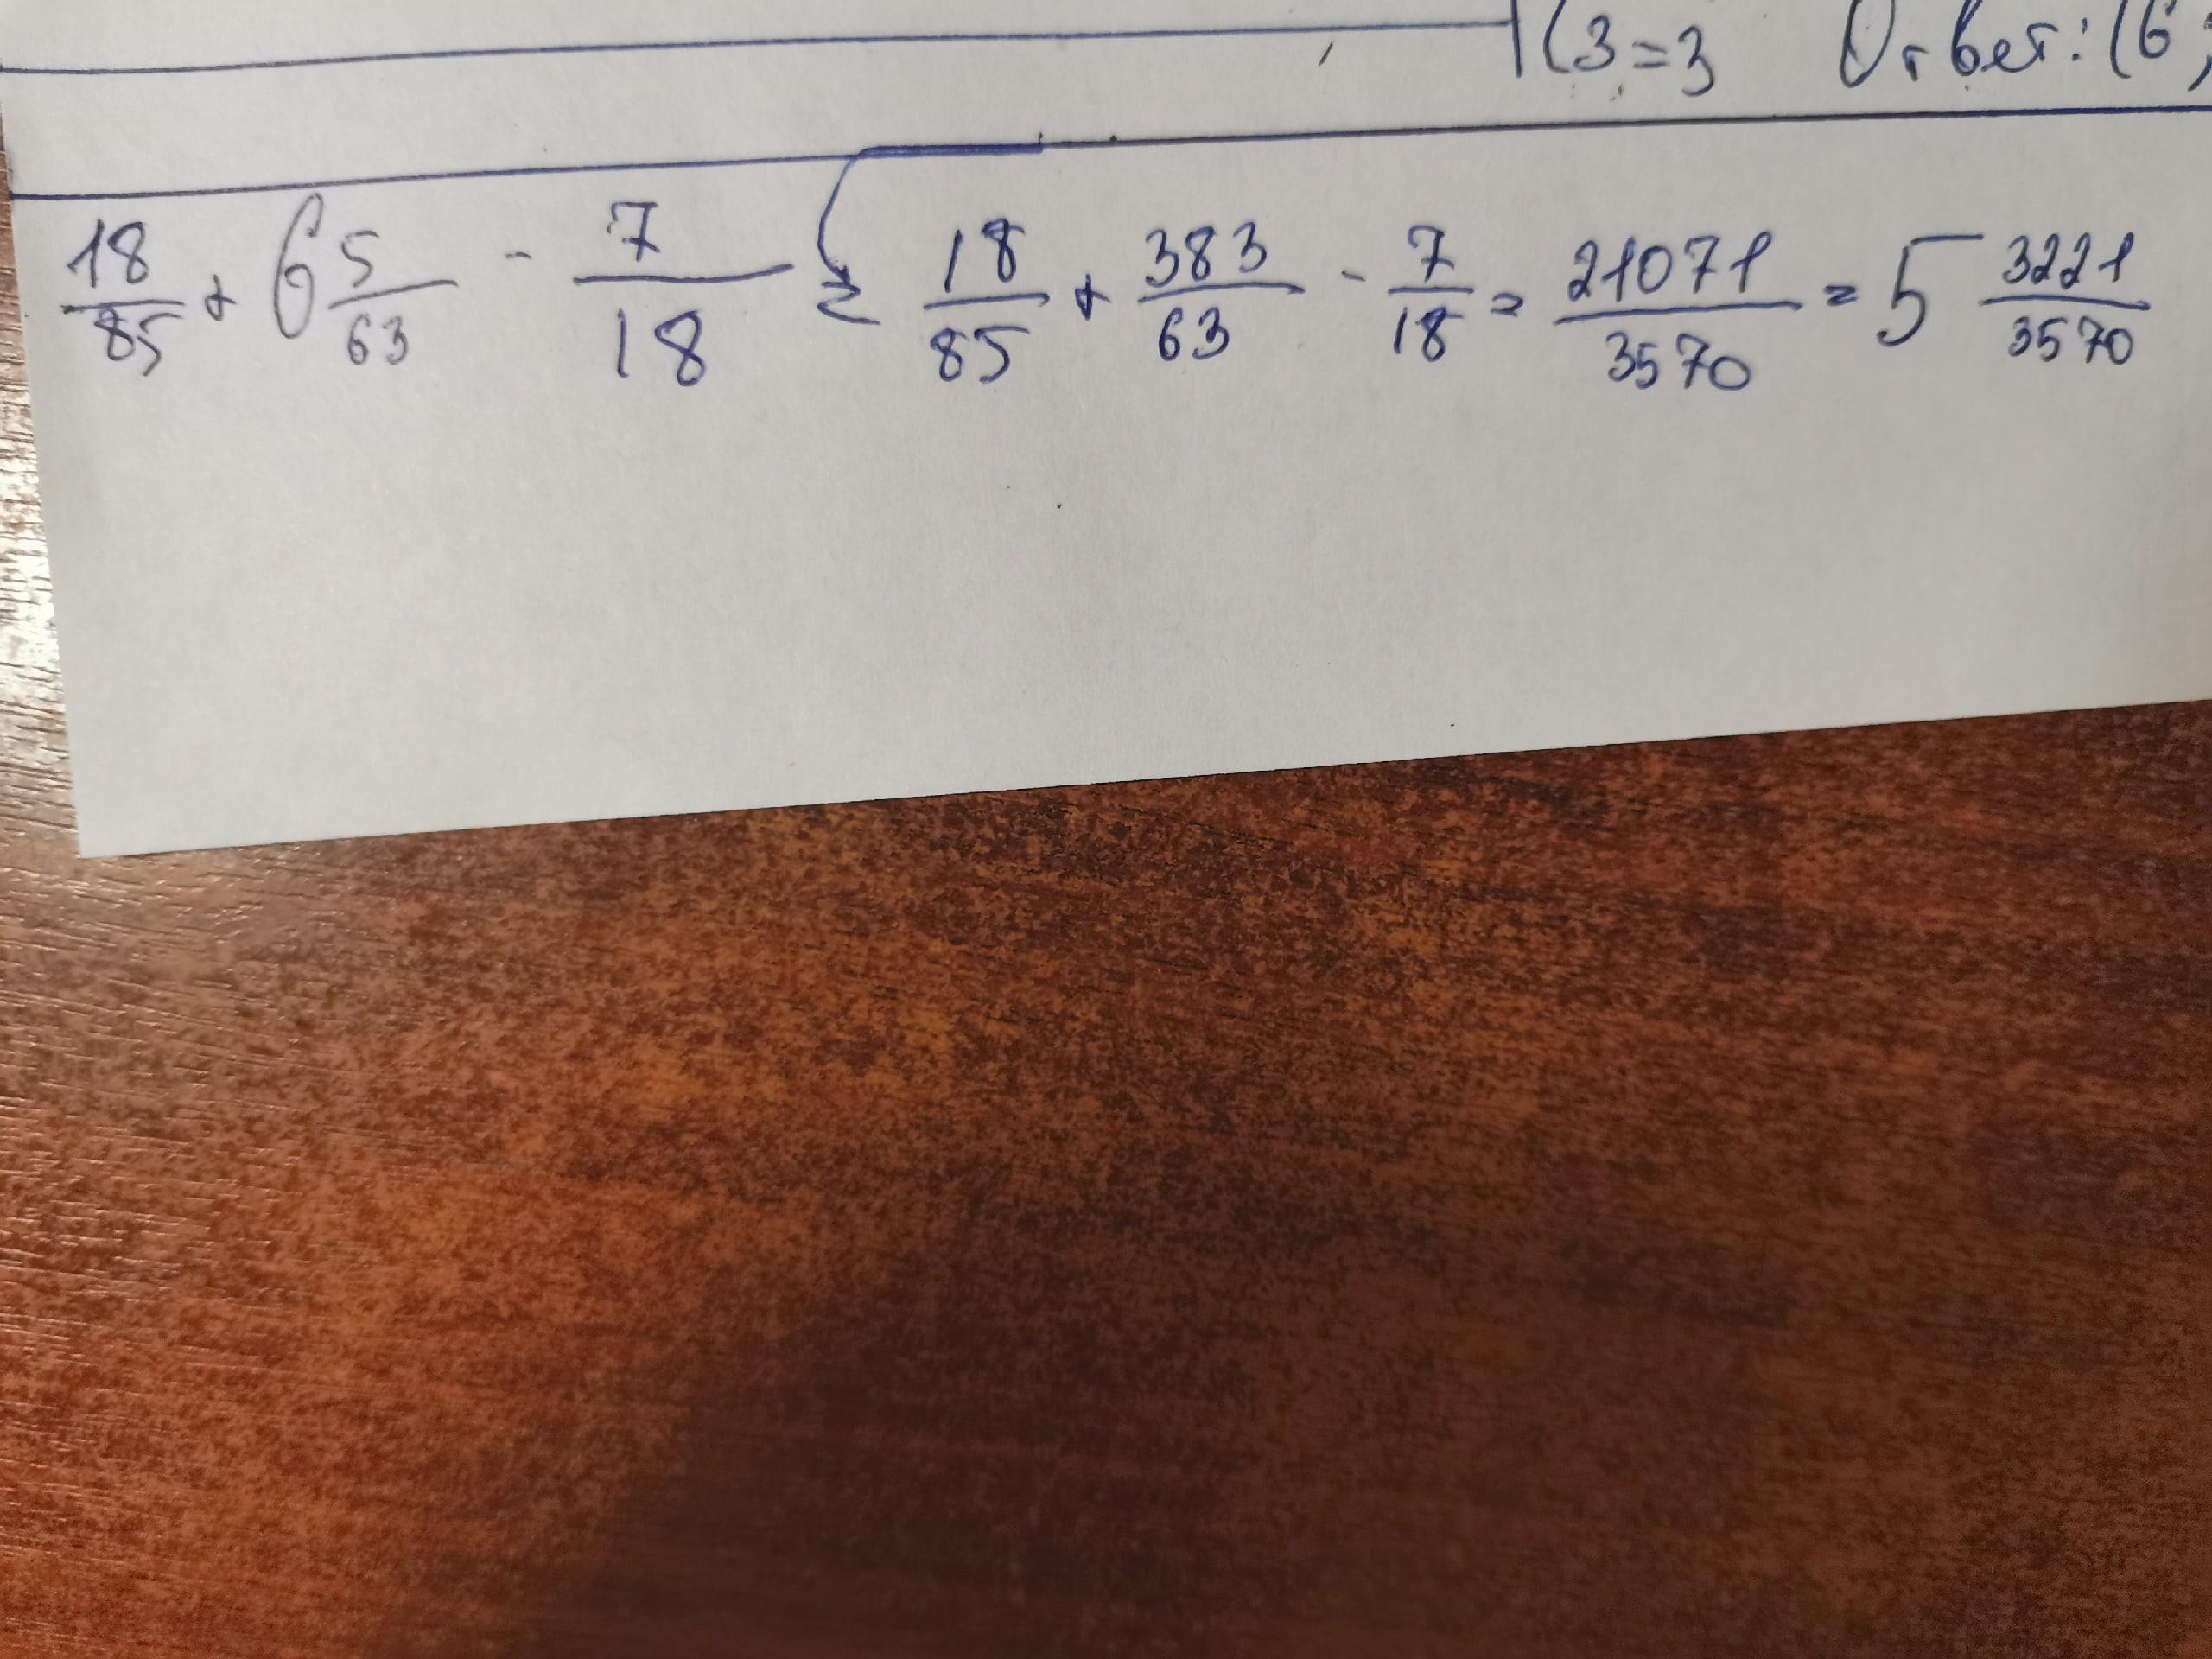 (3=3 Ответ: (6;
18/85 + 6 5/63 - 7/18 = 18/85 + 383/63 - 7/18 = 21071/3570 = 5 3221/3570